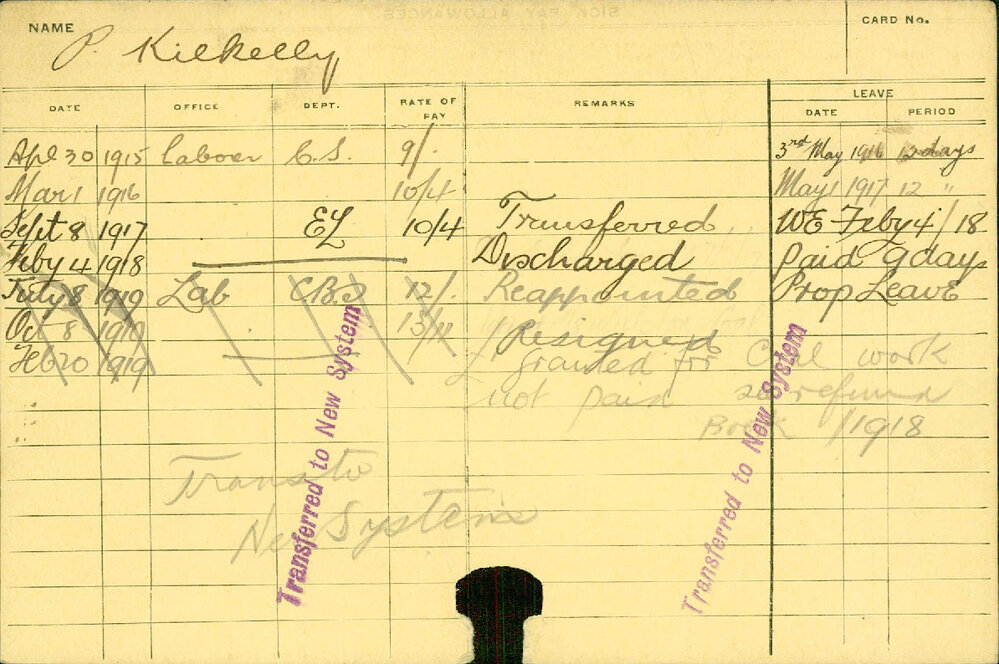 NAME P. Kilkelly CARD No.
DATE OFFICE DEPT. RATE OF PAY REMARKS LEAVE DATE PERIOD
Apl 30 1915 Labour C.S. 9/. 3rd May 1916 12 days
Mar 1 1916 10/4 May 1 1917 12 "
Sept 8 1917 EL 10/4 Transferred WE Feby 4/18
Feby 4 1918 Discharged paid 9 days
July 8 1919 Lab 12/. Reappointed Prop Leave
Oct 8 1919 13/11 Resigned
Feb 20 1919 £ granted for Coal work
not paid see refund
Book 1/1918
Trans to
New System
Transferred to New System
Transferred to New System